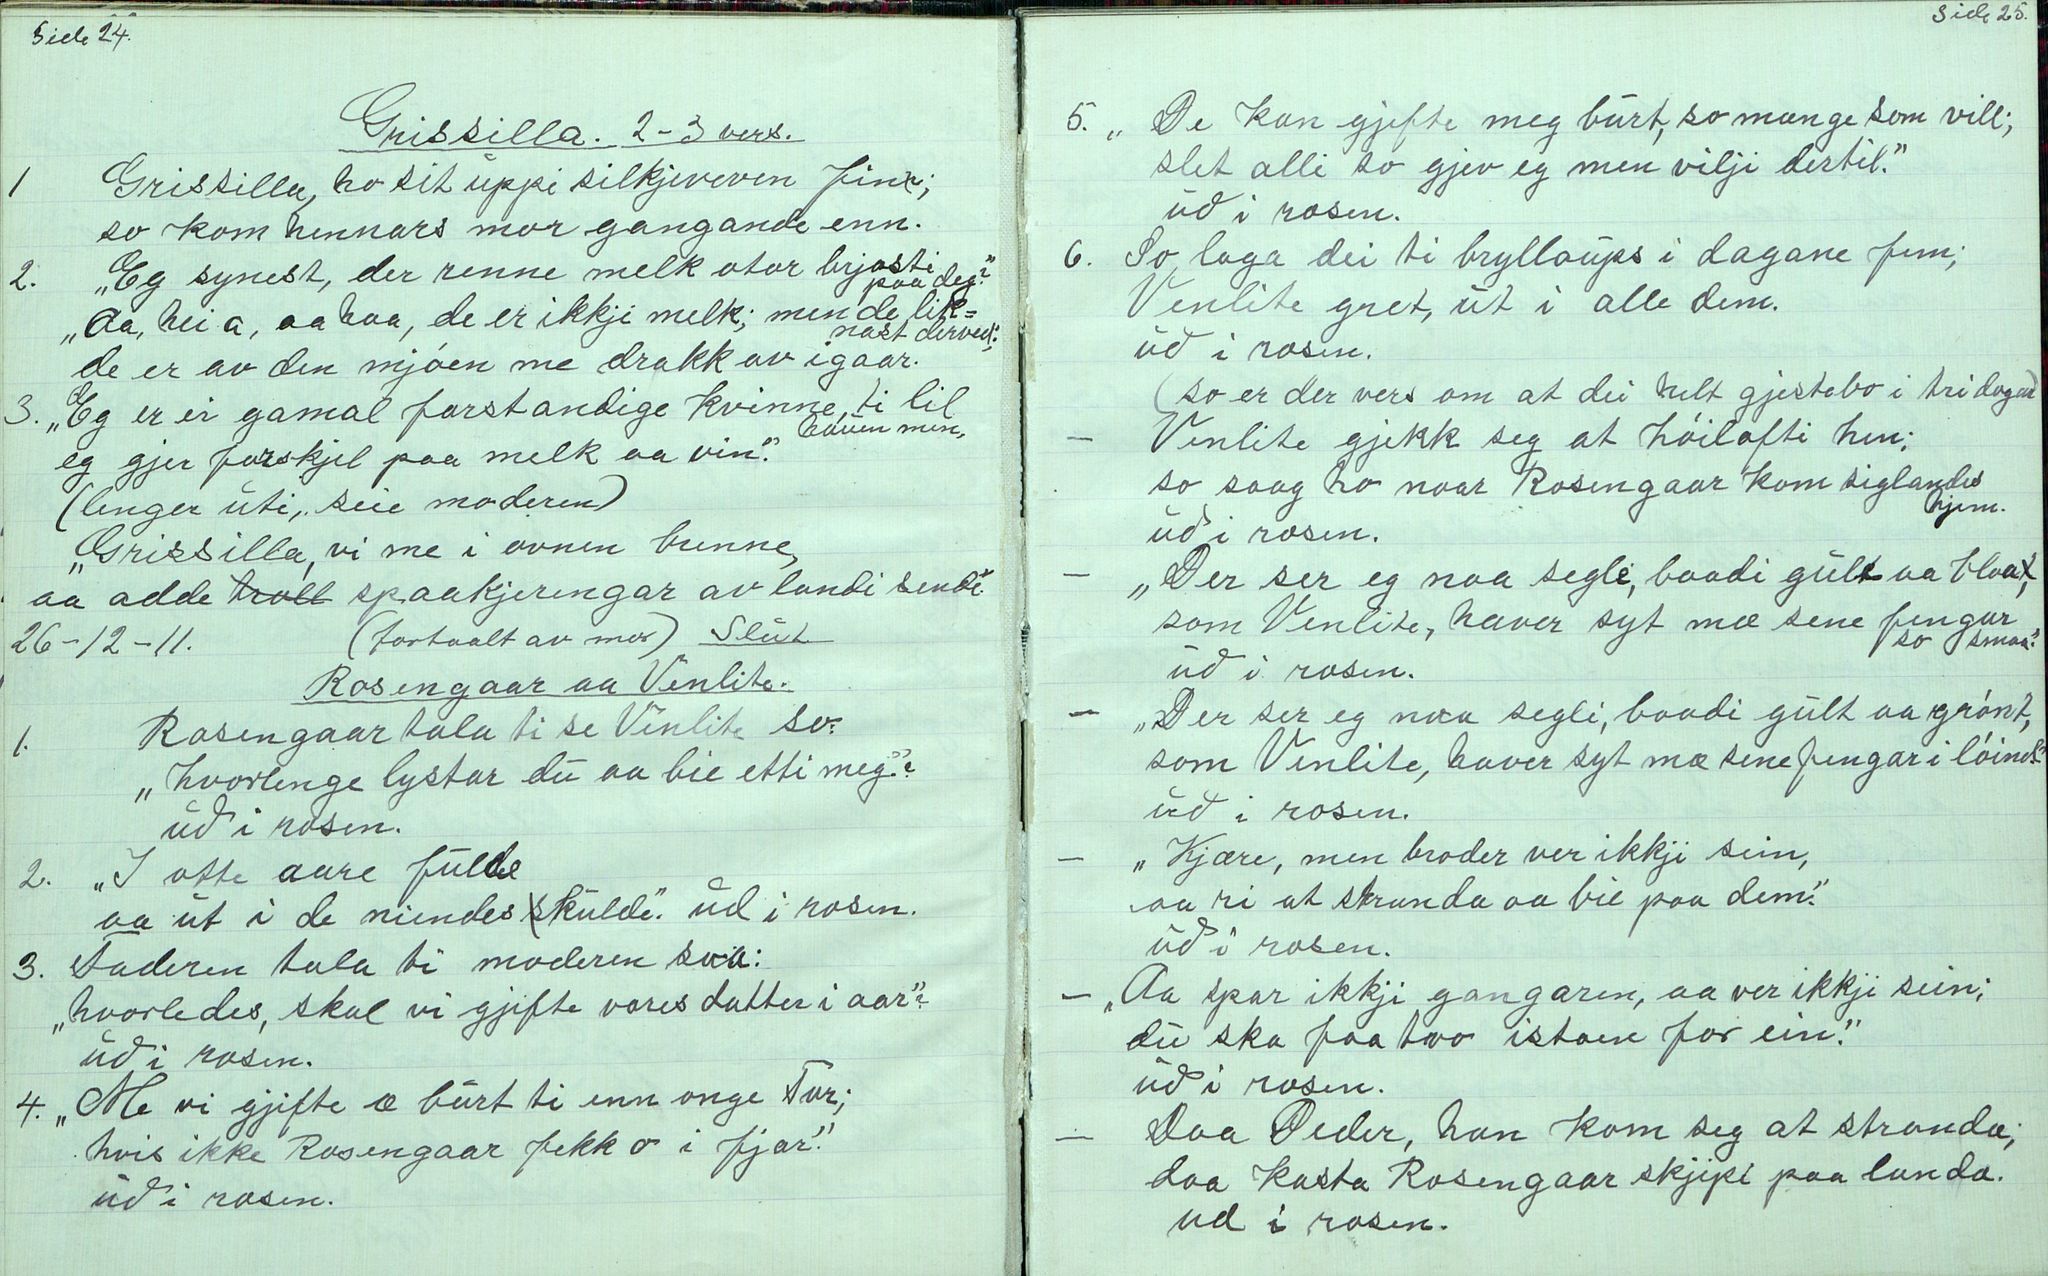 Side 24.
Grissilla. 2-3 vers.
1 Grissilla, ho sit uppi silkjeveven fine;
so kom hennars mor gangande enn.
2. „Eg synest, der renne melk utor brjosti
paa deg?"
„Aa, hei a, aa haa, de er ikkji melk; men de lik=
nast derved;
de er av den mjóen me drakk av igaar.
3. „Eg er ei gamal forstandige kvinne, ti lil
baaen min,
eg gjer forskjel paa melk aa vin."
(lenger uti, seie moderen)
„Grissilla, vi me i ovnen brenne,
aa adde troll spaakjeringar av landi sende."
26-12-11. (fortaalt av mor) Slut
Rosengaar aa Venlite.
1. Rosengaar tala ti se Venlite so:
„hvorlenge lystar du aa bie etti meg"?
ud i rosen.
2. „I otte aare fulde
aa ut i de niendes skulde." ud i rosen.
3. Faderen tala ti moderen saa:
„hvorledes, skal vi gjifte vores datter i aar"?
ud i rosen.
4. „Me vi gjifte æ burt ti enn onge Tor;
hvis ikke Rosengaar fekk o i fjor."
ud i rosen.
Side 25.
5. „De kan gjifte meg burt, so mange som vill;
slet alli so gjev eg men vilji dertil."
ud i rosen.
6. So laga dei ti bryllaups i dagane fem;
Venlite gret, ut i alle dem.
ud i rosen.
(so er der vers om at dei helt gjestebo i tri dogar)
— Venlite gjekk seg at hóilofti hen;
so saag ho naar Rosengaar kom siglandes
hjem.
ud i rosen.
— „Der ser eg naa segli, baadi gult aa blaa,
som Venlite, haver syt mæ sene fengar
so smaa."
ud i rosen.
— „Der ser eg naa segli, baadi gult aa grónt,
som Venlite, haver syt mæ sene fengar i lóind."
ud i rosen.
— „Kjære, men broder ver ikkji sein,
aa ri at stranda aa bie paa dem."
ud i rosen.
— „Aa spar ikkji gangaren, aa ver ikkji sein;
du ska faa two istaen for ein."
ud i rosen.
— Daa Peder, han kom seg at stranda;
daa kasta Rosengaar skjipi paa landa.
ud i rosen.